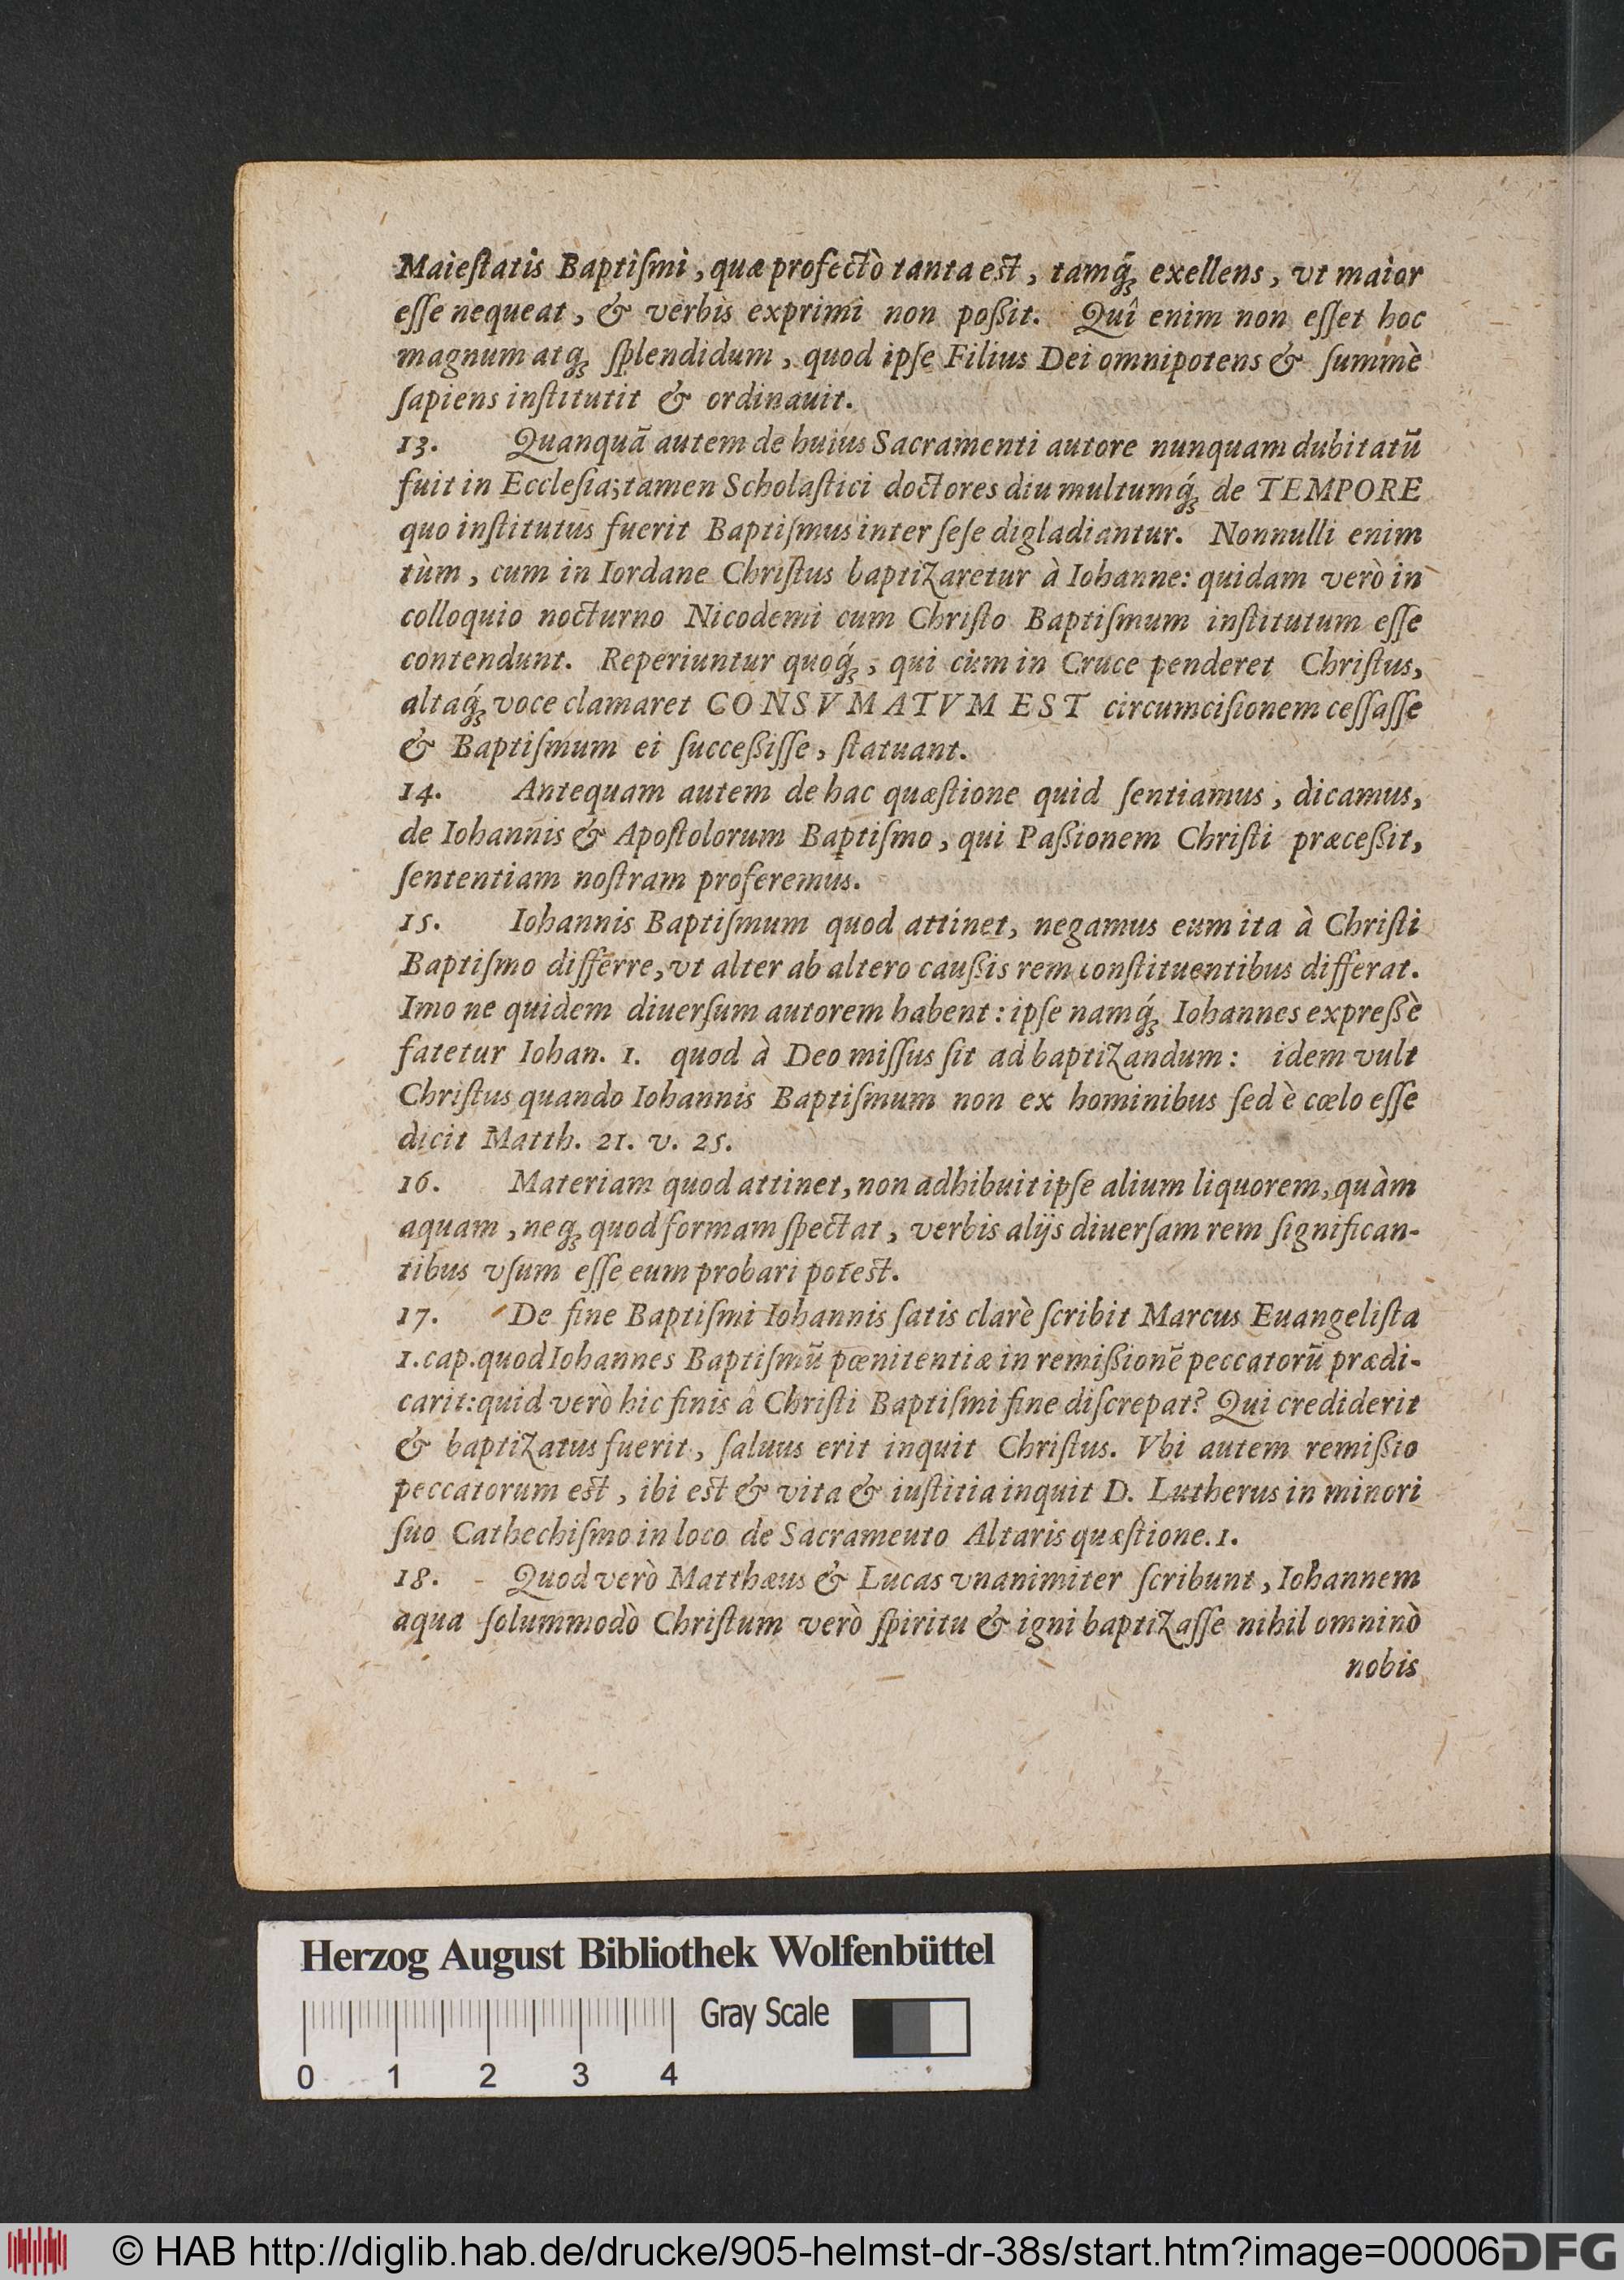 Maieſtatis Baptiſmi, quæ profectò tanta est, tamq́ꝫ exellens, vt maior
eſſe nequeat, & verbis exprimi non poßit. Quî enim non eſſet hoc
magnum atqꝫ ſplendidum, quod ipſe Filius Dei omnipotens & ſummè
ſapiens inſtitutit & ordinauit.
13. Quanquã autem de huius Sacramenti autore nunquam dubitatũ
fuit in Eccleſia; tamen Scholaſtici doctores diu multumq́ꝫ de TEMPORE
quo inſtitutus fuerit Baptiſmus inter ſeſe digladiantur. Nonnulli enim
tùm, cum in Iordane Chriſtus baptizaretur à Iohanne: quidam verò in
colloquio nocturno Nicodemi cum Chriſto Baptiſmum inſtitutum eſſe
contendunt. Reperiuntur quoq́ꝫ, qui cùm in Cruce penderet Chriſtus,
altaq́ꝫ voce clamaret CONSVMATVM EST circumciſionem ceſſaſſe
& Baptiſmum ei ſucceßiſſe, ſtatuant.
14. Antequam autem de hac quæſtione quid ſentiamus, dicamus,
de Iohannis & Apoſtolorum Baptiſmo, qui Paßionem Chriſti præceßit,
ſententiam noſtram proferemus.
15. Iohannis Baptiſmum quod attinet, negamus eum ita à Chriſti
Baptiſmo differre, vt alter ab altero caußis rem conſtituentibus differat.
Imo ne quidem diuerſum autorem habent: ipſe namq́ꝫ Iohannes expreßè
fatetur Iohan. 1. quod à Deo miſſus ſit ad baptizandum: idem vult
Chriſtus quando Iohannis Baptiſmum non ex hominibus ſed è cœlo eſſe
dicit Matth. 21. v. 25.
16. Materiam quod attinet, non adhibuit ipſe alium liquorem, quàm
aquam, neqꝫ quod formam ſpectat, verbis alijs diuerſam rem ſignifican-
tibus vſum eſſe eum probari potest.
17. De fine Baptiſmi Iohannis ſatis clarè ſcribit Marcus Euangeliſta
1. cap. quod Iohannes Baptiſmũ pœnitentiæ in remißionẽ peccatorũ prædi-
carit: quid verò hic finis â Chriſti Baptiſmi fine diſcrepat? Qui crediderit
& baptizatus fuerit, ſaluus erit inquit Chriſtus. Vbi autem remißio
peccatorum est, ibi est & vita & iuſtitia inquit D. Lutherus in minori
ſuo Cathechiſmo in loco de Sacramento Altaris quæſtione. 1.
18. Quod verò Matthæus & Lucas vnanimiter ſcribunt, Iohannem
aqua ſolummodò Chriſtum verò ſpiritu & igni baptizaſſe nihil omninò
nobis
Herzog August Bibliothek Wolfenbüttel
Gray Scale
0 1 2 3 4
© HAB http://diglib.hab.de/drucke/905-helmst-dr-38s/start.htm?image=00006
DFG